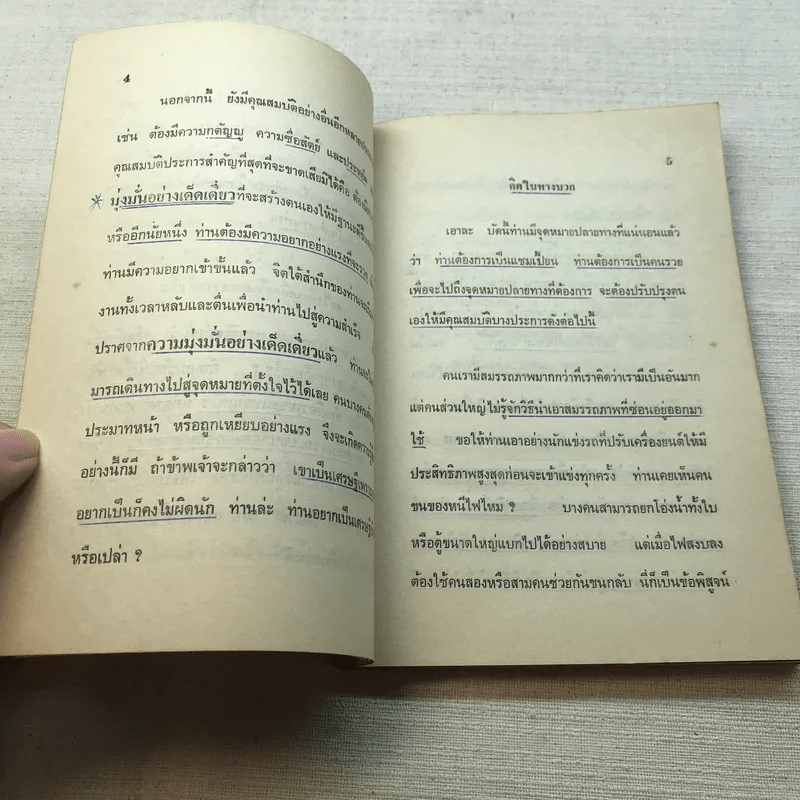 4
นอกจากนี้ ยังมีคุณสมบัติอย่างอื่นอีกหลาย
เช่น ต้องมีความกตัญญู ความซื่อสัตย์ และประหยัด
คุณสมบัติประการสำคัญที่สุดที่จะขาดเสียมิได้คือ ต้อง
มุ่งมั่นอย่างเด็ดเดี่ยวที่จะสร้างตนเองให้มีฐานะ
หรืออีกนัยหนึ่ง ท่านต้องมีความอยากอย่างแรงที่จะรวย
ท่านมีความอยากเข้าขั้นแล้ว จิตใต้สำนึกของท่าน
งานทั้งเวลาหลับและตื่นเพื่อนำท่านไปสู่ความสำเร็จ
ปราศจากความมุ่งมั่นอย่างเด็ดเดี่ยวแล้ว ท่าน
มารถเดินทางไปสู่จุดหมายที่ตั้งใจไว้ได้เลย คนบางคน
ประมาทหน้า หรือถูกเหยียบอย่างแรง จึงจะเกิดความ
อย่างนี้ก็มี ถ้าข้าพเจ้าจะกล่าวว่า เขาเป็นเศรษฐีเพราะ
อยากเป็นก็คงไม่ผิดนัก ท่านล่ะ ท่านอยากเป็นเศรษฐี
หรือเปล่า ?
5
คิดในทางบวก
เอาละ บัดนี้ท่านมีจุดหมายปลายทางที่แน่นอนแล้ว
ว่า ท่านต้องการเป็นแชมเปี้ยน ท่านต้องการเป็นคนรวย
เพื่อจะไปถึงจุดหมายปลายทางที่ต้องการ จะต้องปรับปรุงตน
เองให้มีคุณสมบัติบางประการดังต่อไปนี้
คนเรามีสมรรถภาพมากกว่าที่เราคิดว่าเรามีเป็นอันมาก
แต่คนส่วนใหญ่ไม่รู้จักวิธีนำเอาสมรรถภาพที่ซ่อนอยู่ออกมา
ใช้ ขอให้ท่านเอาอย่างนักแข่งรถที่ปรับเครื่องยนต์ให้มี
ประสิทธิภาพสูงสุดก่อนจะเข้าแข่งทุกครั้ง ท่านเคยเห็นคน
ขนของหนีไฟไหม ? บางคนสามารถยกโอ่งน้ำทั้งใบ
หรือตู้ขนาดใหญ่แบกไปได้อย่างสบาย แต่เมื่อไฟสงบลง
ต้องใช้คนสองหรือสามคนช่วยกันขนกลับ นี่ก็เป็นข้อพิสูจน์